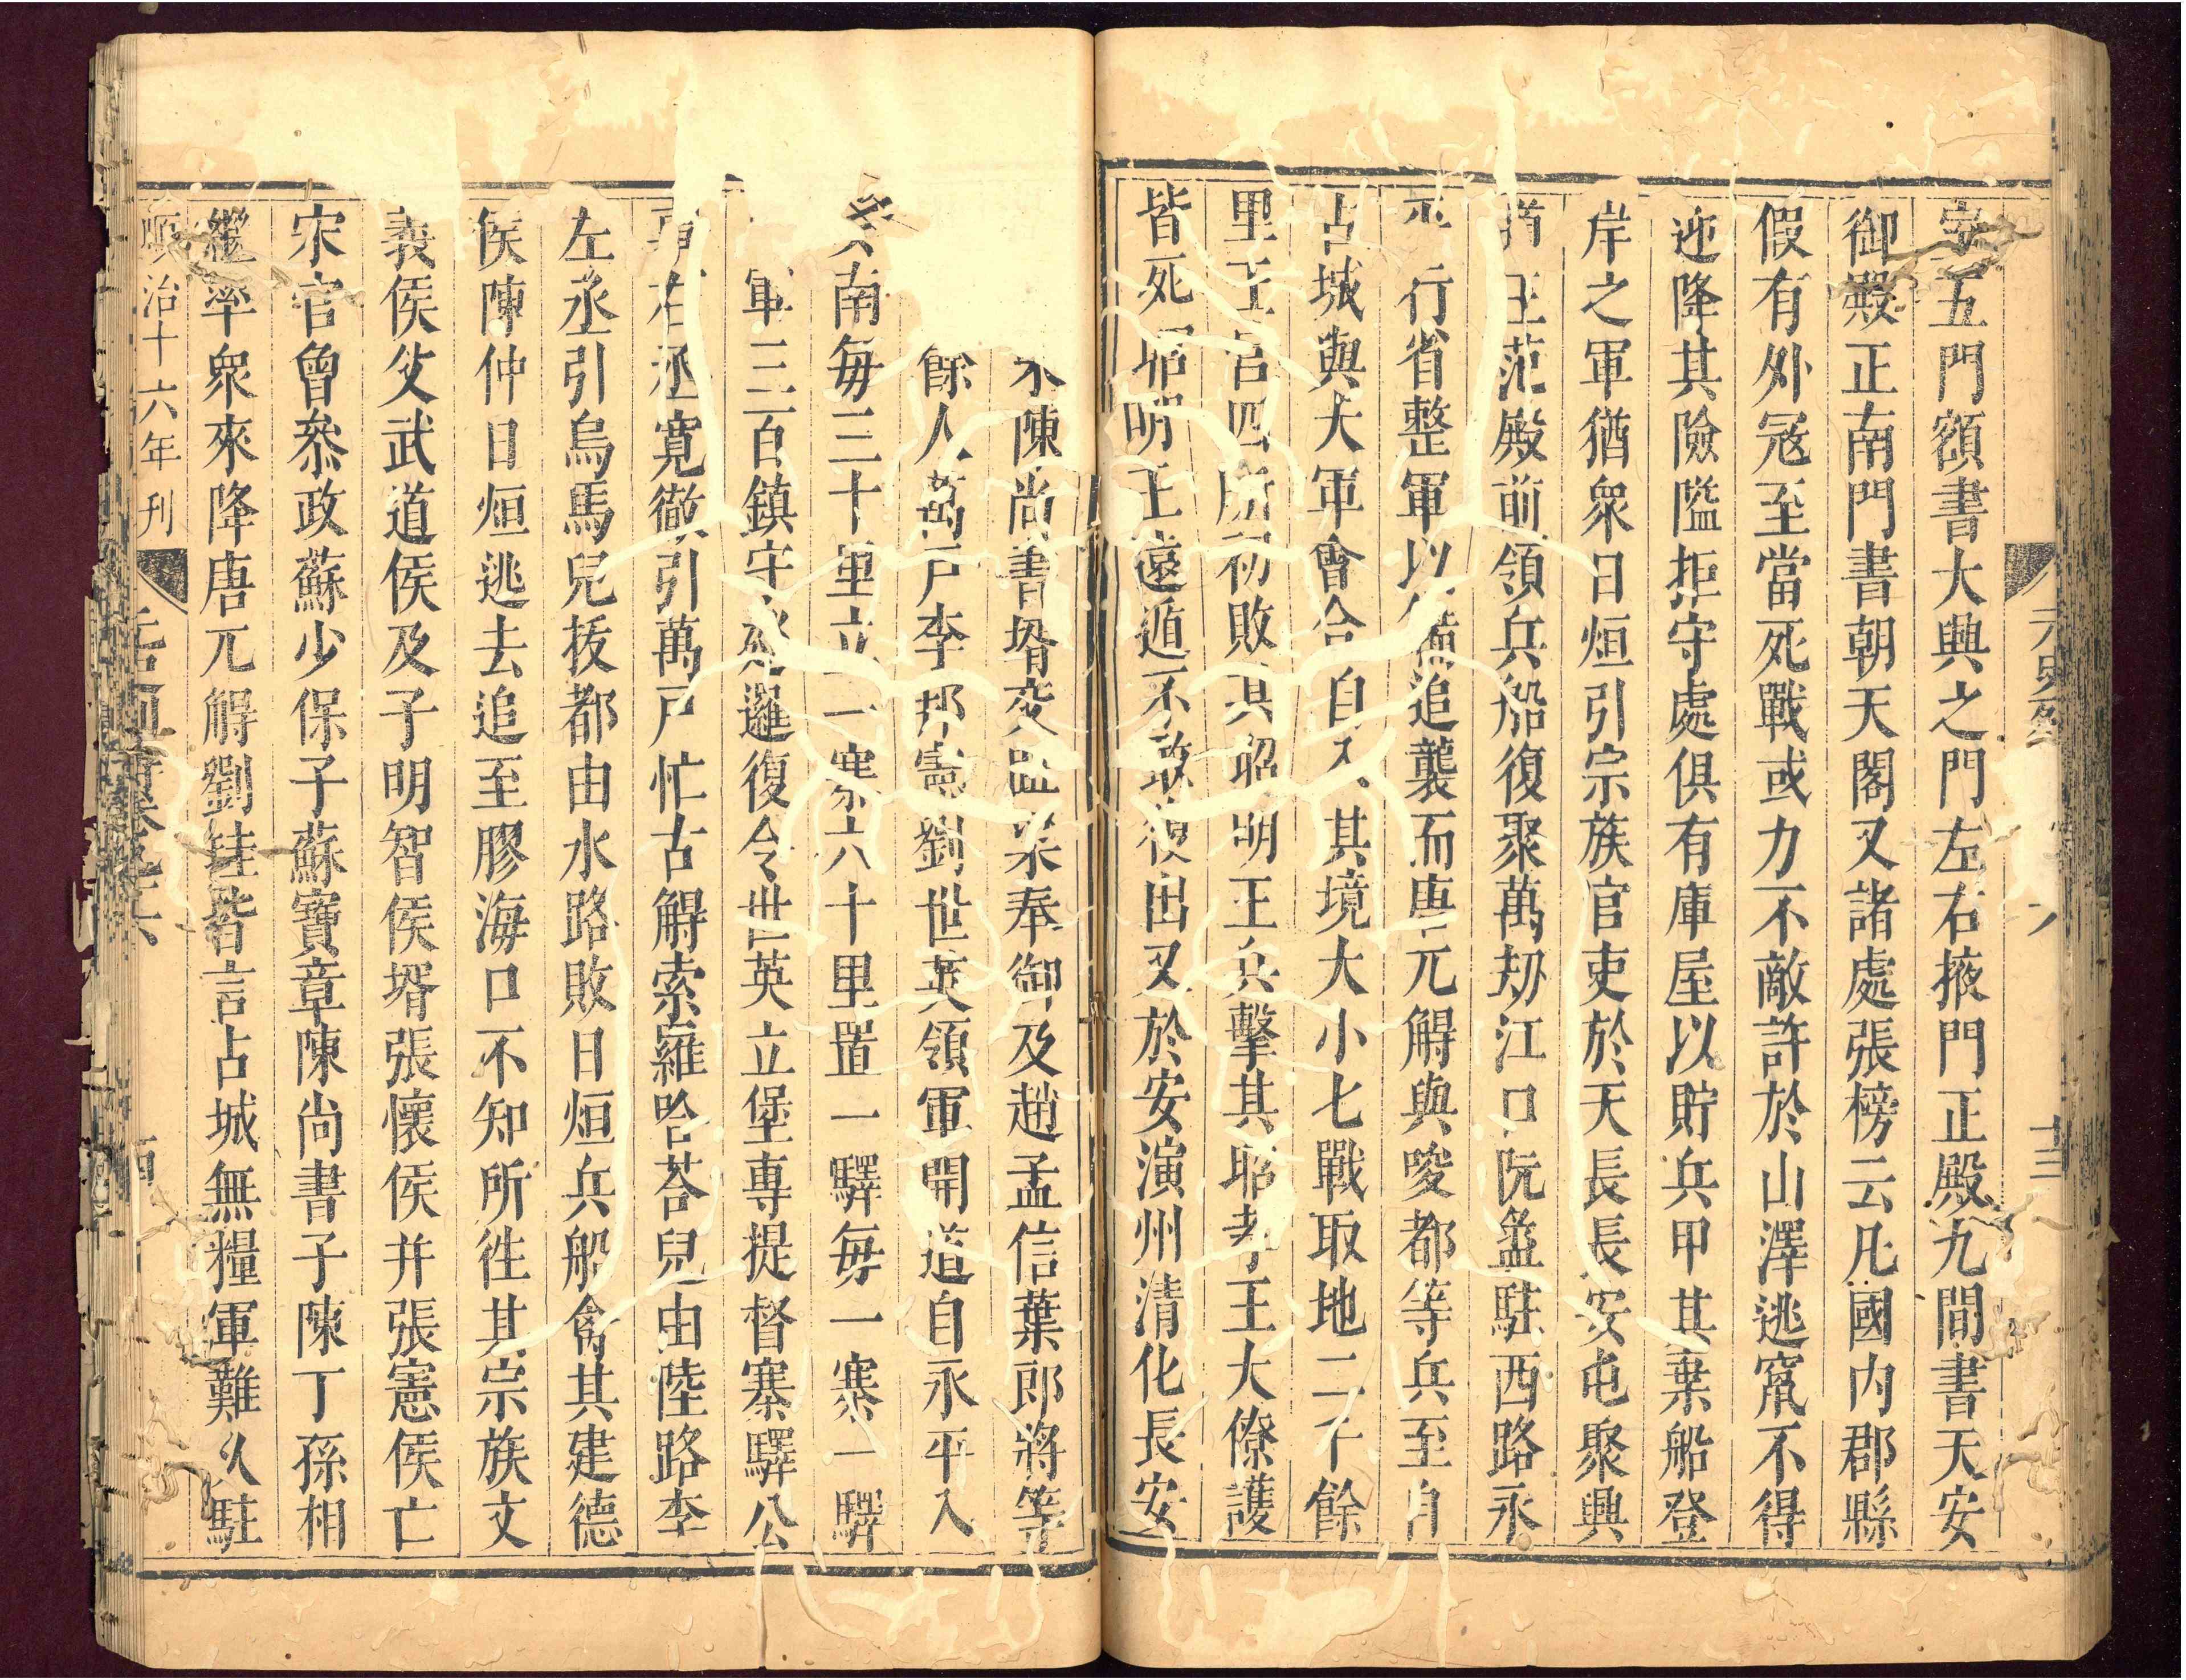 五門額書大興之門左右掖門正殿九間書天安
御殿正南門書朝天閣又諸處張榜云凡國内郡縣
假有外冦至當死戰或力不敵許於山澤逃竄不得
迎降其險隘拒守處俱有庫屋以貯兵甲其棄船登
岸之軍猶衆日烜引宗族官吏於天長長安屯聚興
王范殿前領兵船復聚萬刼江口阮盝駐西路永
行省整軍以備追襲而唐兀䚟與唆都等兵至自
占城與大軍會合自入其境大小七戰取地二千餘
里王宫四所初敗其昭明王兵擊其昭孝王大僚護
皆死昭明王遠遁不敢復出又於安演州清化長安
陳尚書壻交趾梁奉御及趙孟信葉郎將等
餘人萬戸李邦憲劉世英領軍開道自永平入
南每三十里立一寨六十里置一驛每一寨一驛
軍三百鎮守巡邏復令世英立堡專提督寨驛公
右丞寛徹引萬戸忙古䚟索羅哈荅兒由陸路李
左丞引烏馬兒拔都由水路敗日烜兵船禽其建德
侯陳仲日烜逃去追至膠海口不知所徃其宗族文
義侯父武道侯及子明智侯壻張懷侯并張憲侯亡
宋官曾叅政蘇少保子蘇寶章陳尚書子陳丁孫相
繼率衆來降唐兀䚟劉珪皆言占城無糧軍難久駐
順治十六年刋